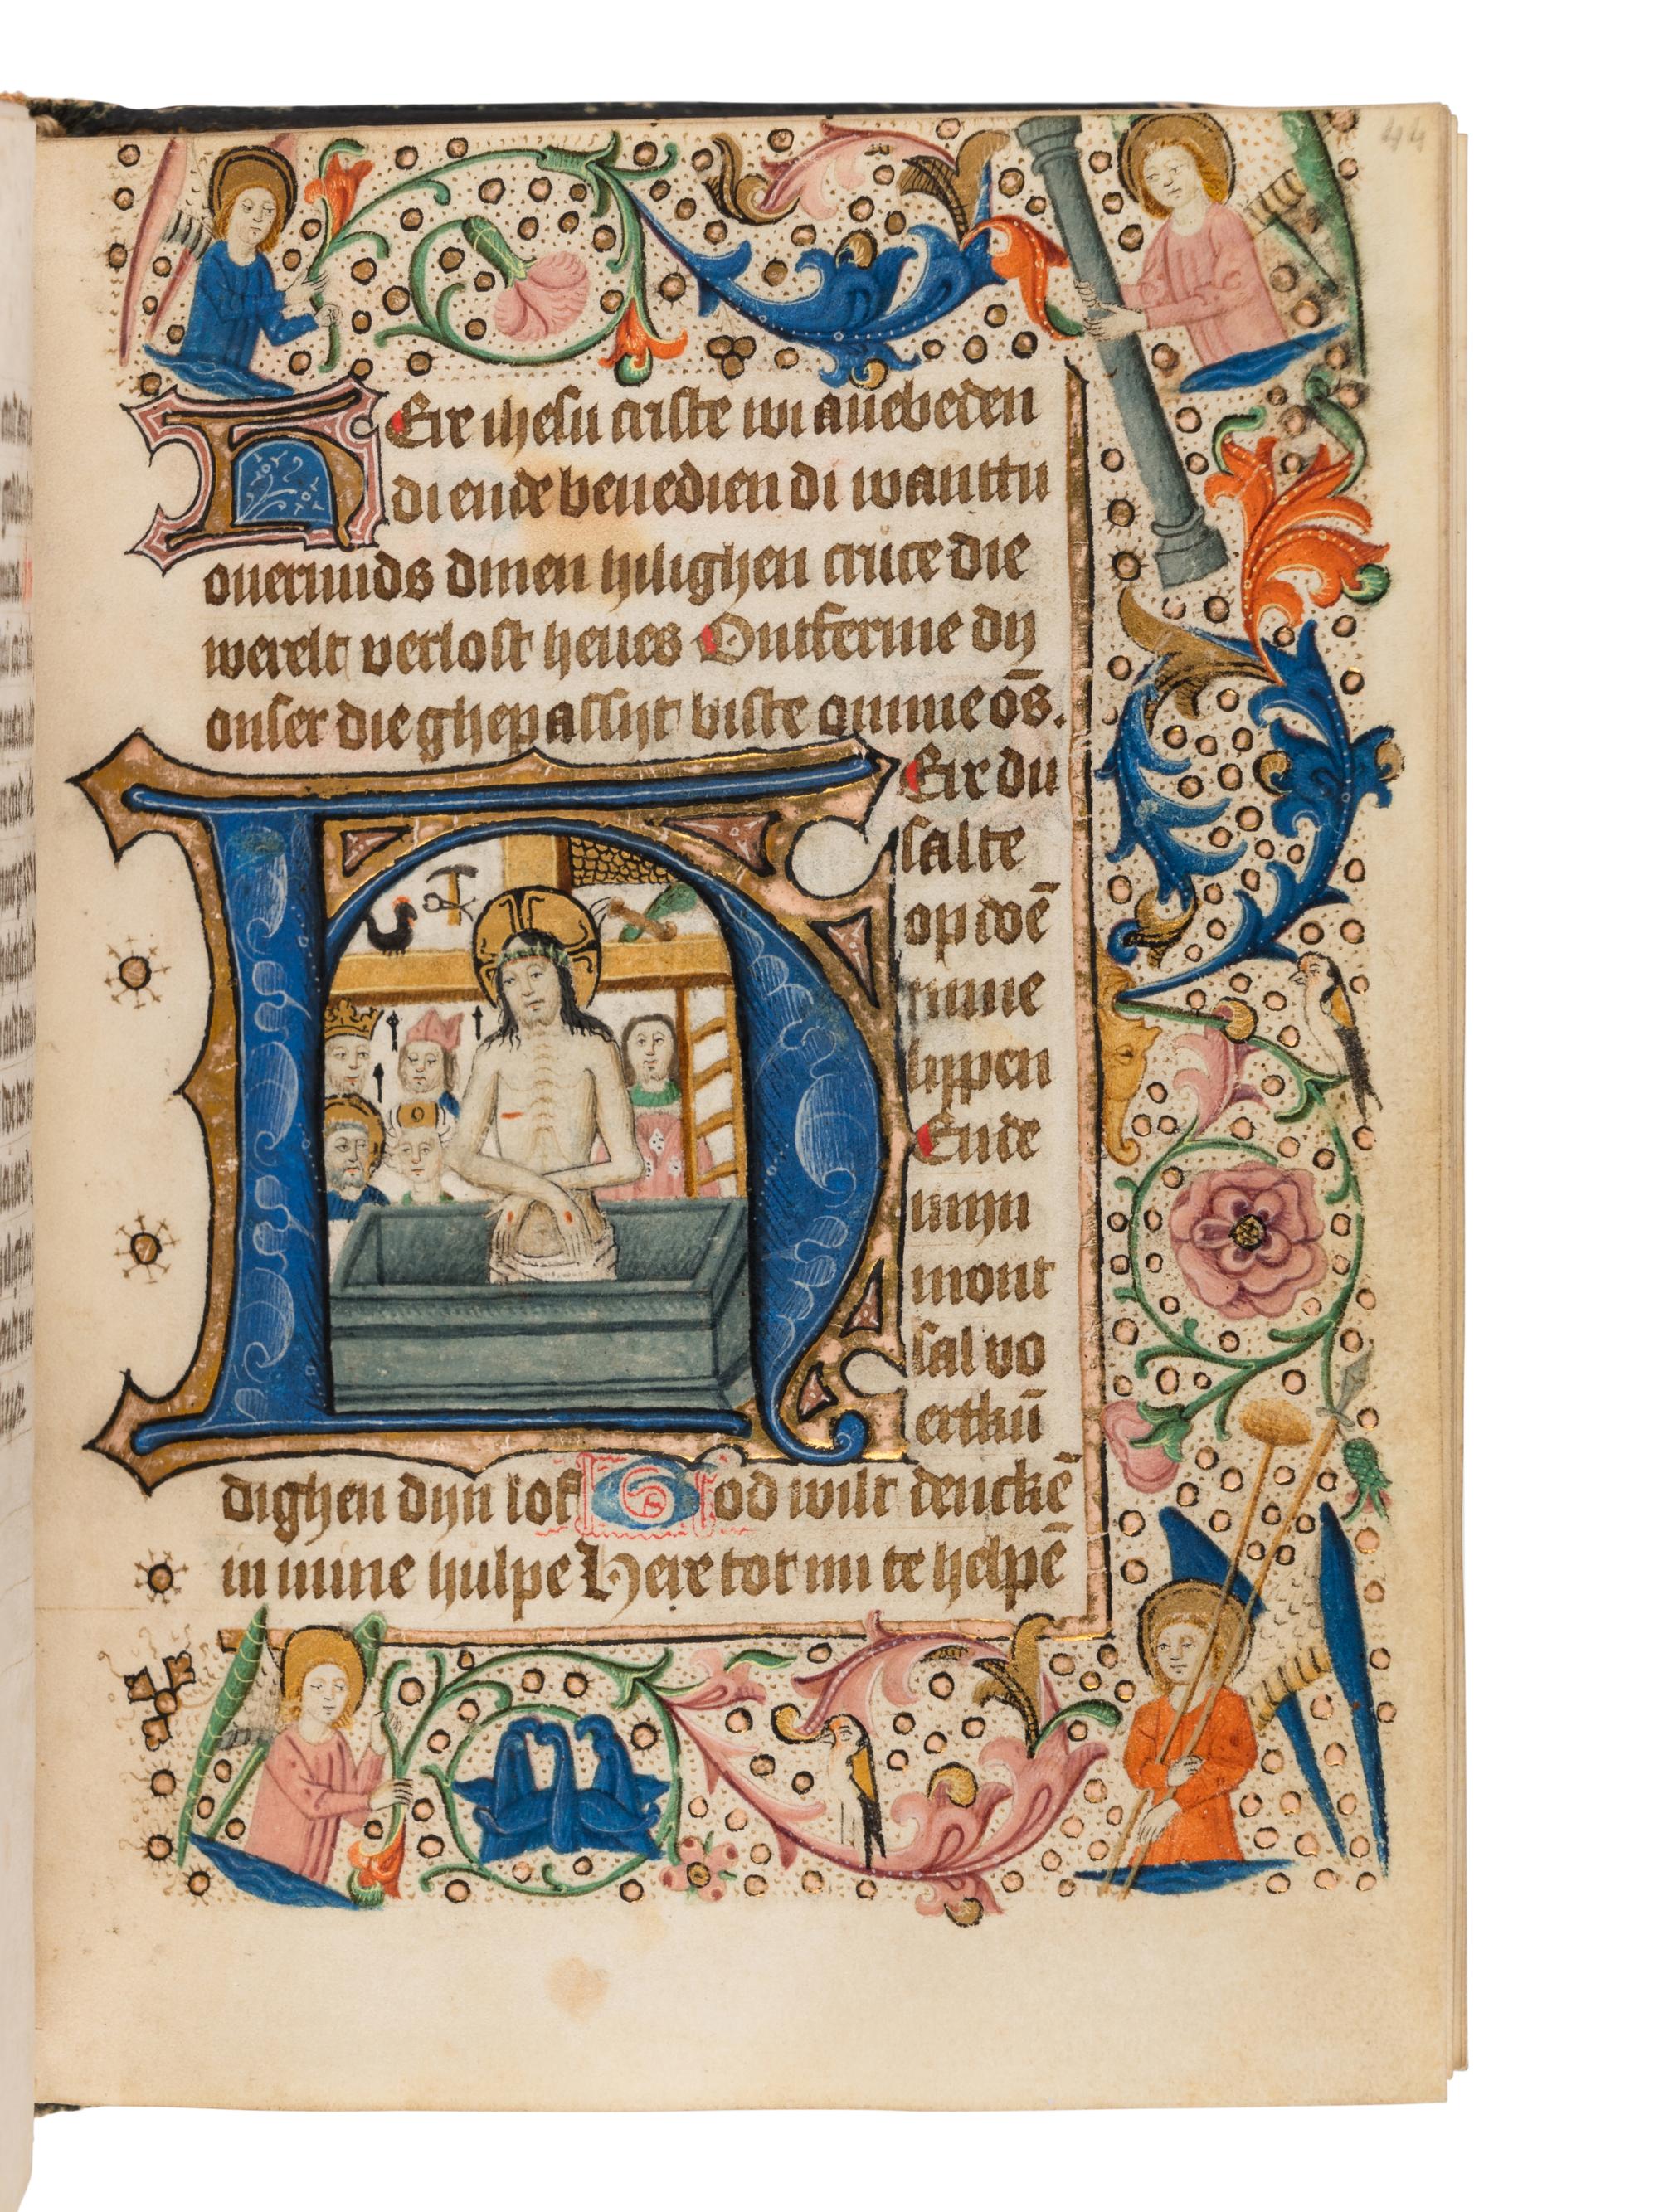 44
HEire ihesu criste wi anebeden
di ende benedien di wanttu
ouermids dinen hilighen cruce die
werelt verlost heues Ontferme dij
onser die ghepassijt biste omme ōs.
HEire du
salte
op doē
mine
lippen
Ende
mijn
mont
sal vo
ertkū
dighen dijn lof God wilt denckē
in mine hulpe Here tot mi te helpē